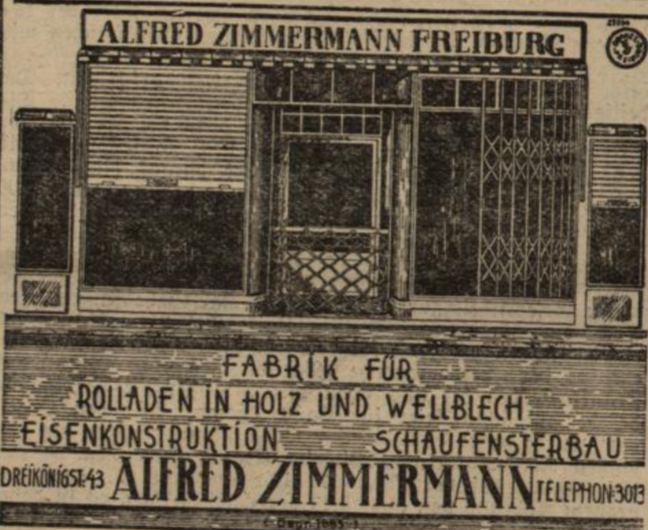 ALFRED ZIMMERMANN FREIBURG
FABRIK FÜR
ROLLADEN IN HOLZ UND WELLBLECH
EISENKONSTRUKTION SCHAUFENSTERBAU
DREIKÖNIGST.43 ALFRED ZIMMERMANN TELEPHON:3013